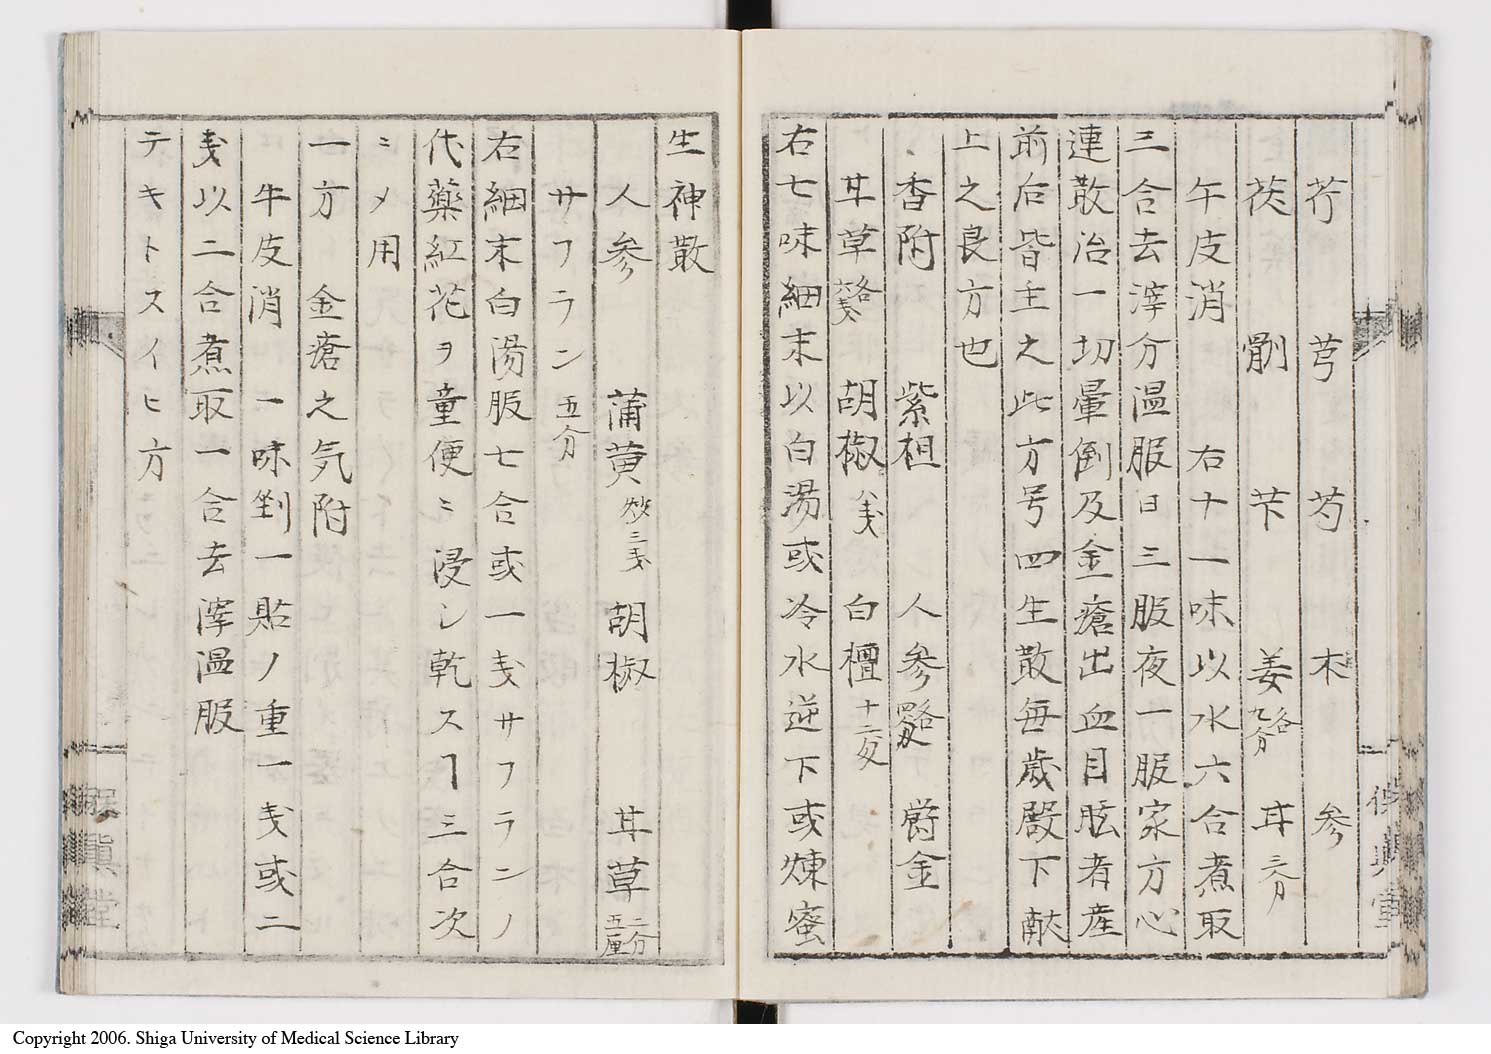 芍　芎　芍　木　参
茯　　　苄　姜各九分　耳三分
午皮消　右十一味以水六合煮取
三合去滓分温服日三服夜一服家方心
連散治一切暈倒及金瘡出血目眩者産
前后皆主之此方号四生散毎歳殿下献
上之良方也
香附　紫柤　人参各四分　欝金
耳草各六戔　胡椒八戔　白檀十二戔
右七味細末以白湯或冷水逆下或煉蜜
生神散
人参　蒲黄炒三戔　胡椒　耳草二分五厘
サフラン五分
右細末白湯服七合或一戔サフランノ
代薬紅花ヲ童便ニ浸シ乾スヿ三合次
ニメ用
一方　金瘡之気附
牛皮消　一味剉一貼ノ重一戔或二
戔以二合煮取一合去滓温服
テキトスイヒ方
Copyright 2006. Shiga University of Medical Science Library